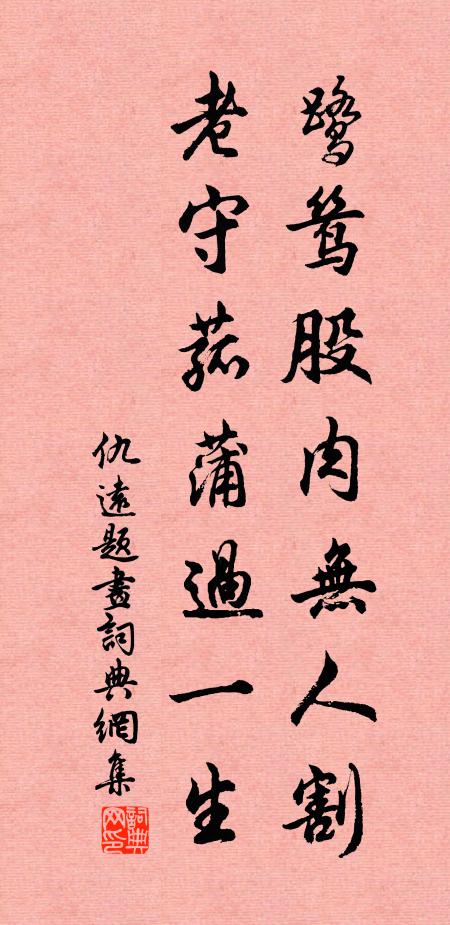 鷺鷥股肉無人割
老守菰蒲過一生
仇遠題畫詞典網集
詞典网印